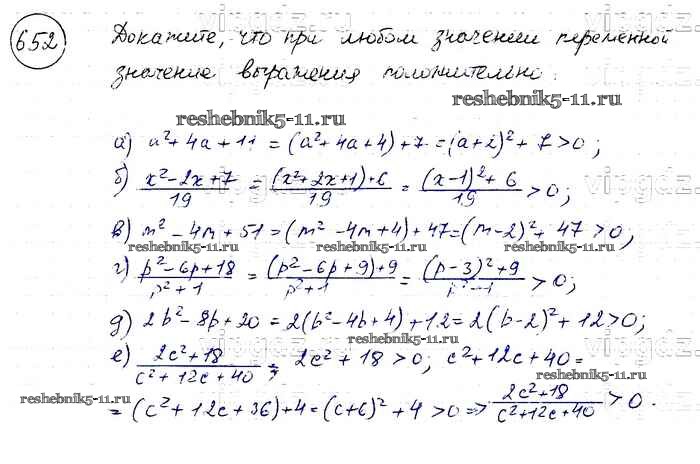 652
Докажите, что при любом значении переменной
значение выражения положительно.
reshebnik5-11.ru
reshebnik5-11.ru
а) a²+4a+11 = (a²+4a+4)+7 = (a+2)²+7>0;
б) (x²-2x+7)/19 = ((x²+2x+1)+6)/19 = ((x-1)²+6)/19 >0;
в) m²-4m+51=(m²-4m+4)+47=(m-2)²+47>0;
reshebnik5-11.ru reshebnik5-11.ru
г) (p²-6p+18)/(p²+1) = ((p²-6p+9)+9)/(p²+1) = ((p-3)²+9)/(p²-1) >0;
д) 2b²-8b+20=2(b²-4b+4)+12=2(b-2)²+12>0;
reshebnik5-11.ru
е) (2c²+18)/(c²+12c+40); 2c²+18>0; c²+12c+40=
reshebnik5-11.ru reshebnik5-11.ru
=(c²+12c+36)+4=(c+6)²+4>0=> (2c²+18)/(c²+12c+40) >0.
vipgdz.com